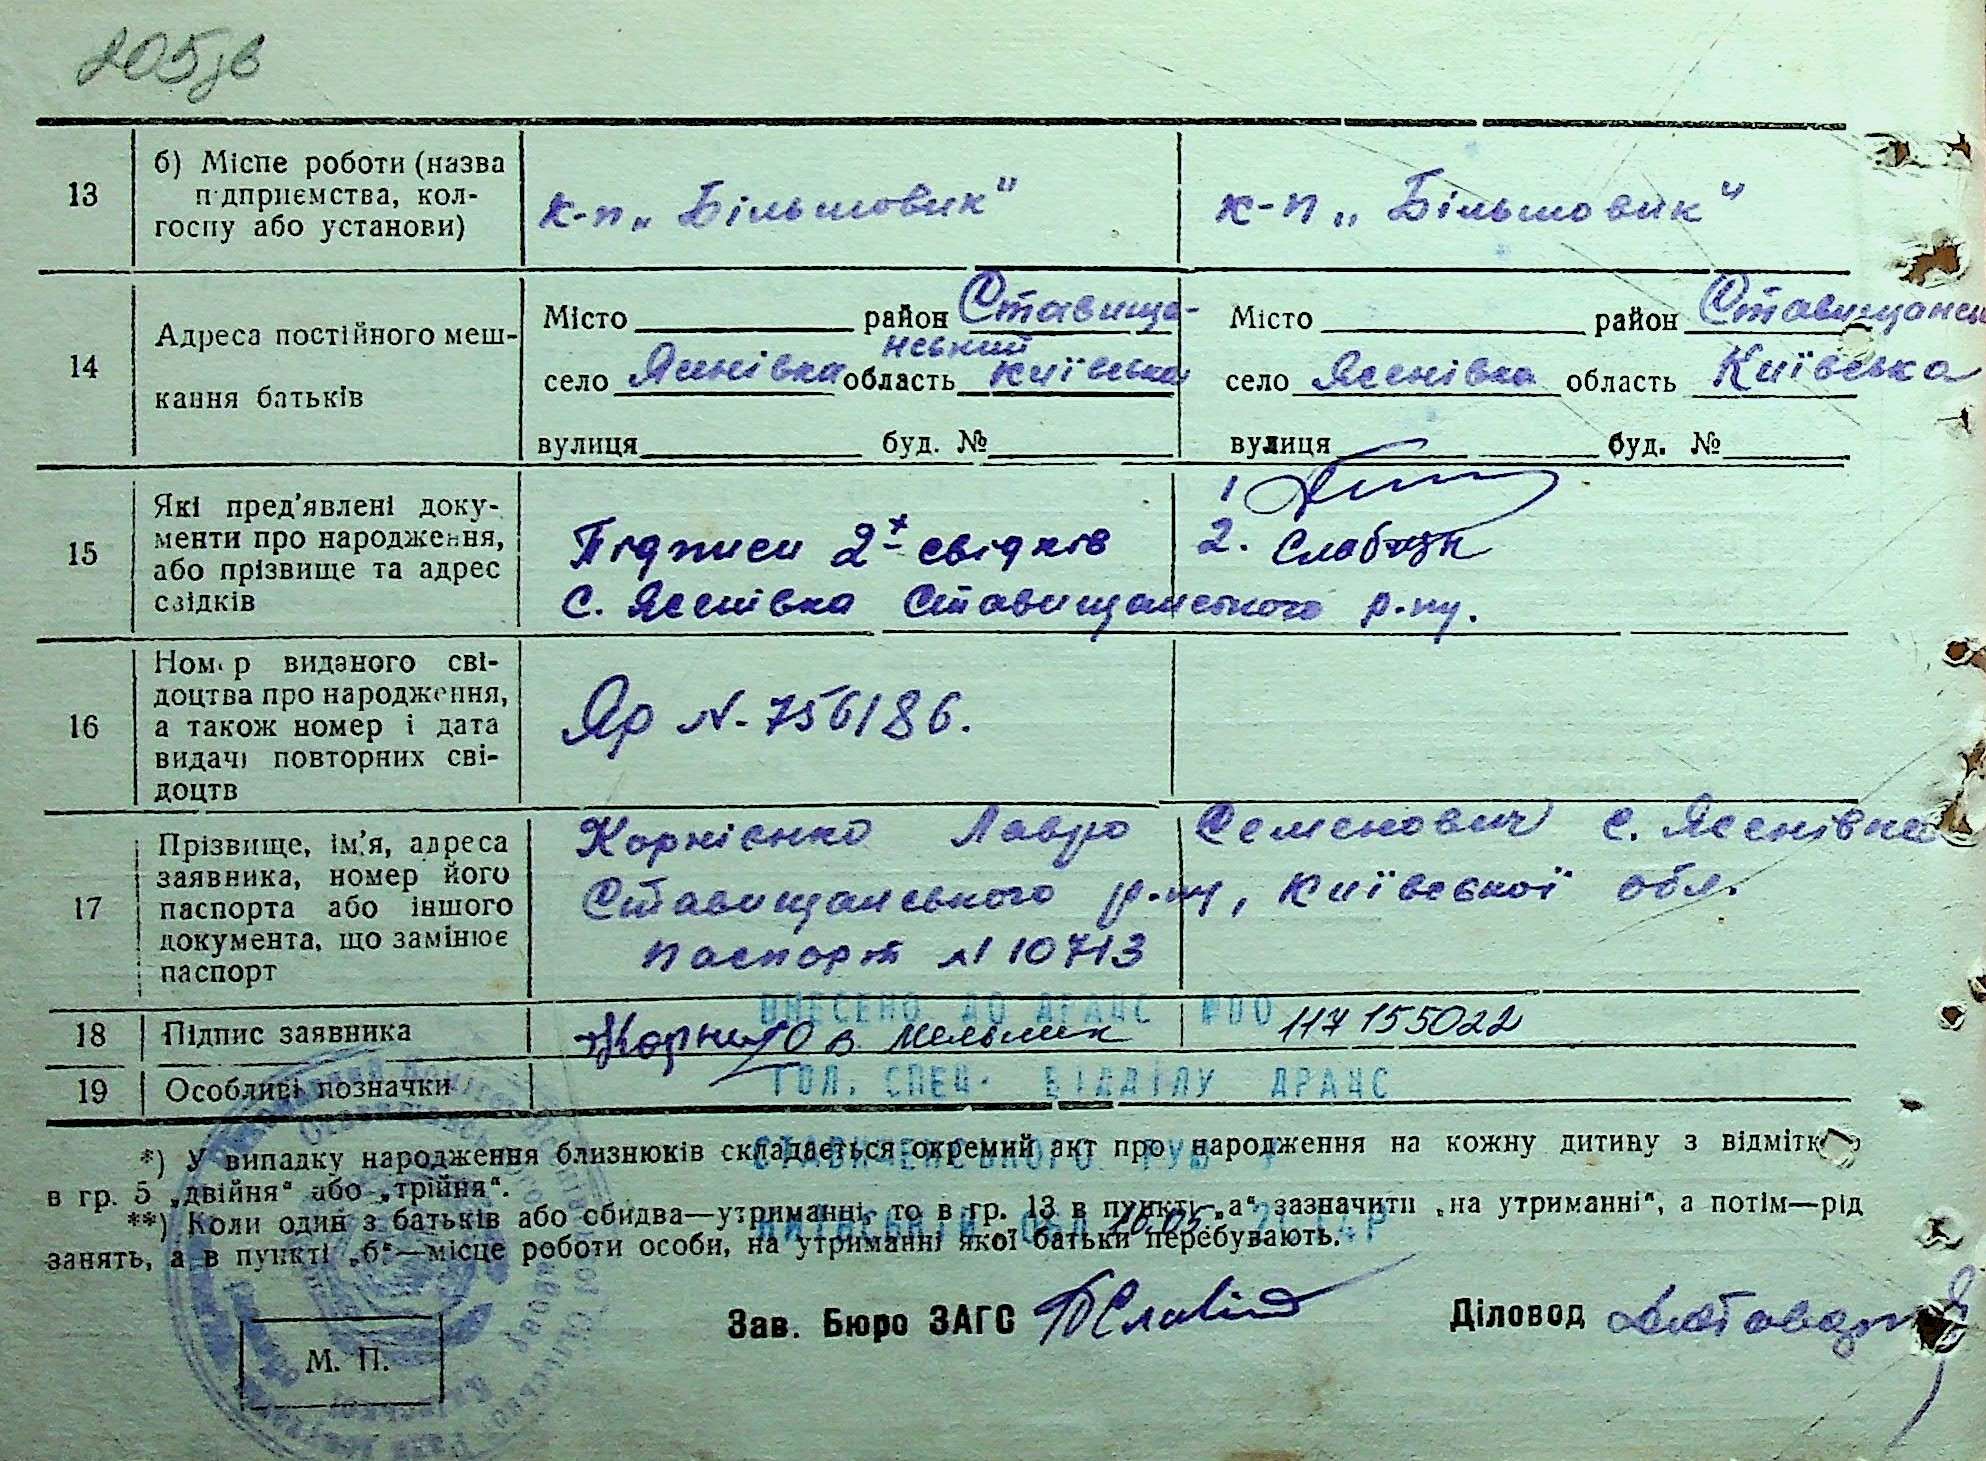 205зв
13
б) Місце роботи (назва
підприємства, кол-
госпу або установи)
к-п „Більшовик"
к-п „Більшовик"
14
Адреса постійного меш-
кання батьків
Місто район Ставища-
нський
село Яснівка область Київська
вулиця буд. №
Місто район Ставищанськ
село Ясенівка область Київська
вулиця буд. №
15
Які пред'явлені доку-
менти про народження,
або прізвище та адрес
свідків
Підписи 2х свідків
1
2.
с. Ясенівка Ставищанського р-ну.
16
Номер виданого сві-
доцтва про народження,
а також номер і дата
видачі повторних сві-
доцтв
Яр N-756186.
17
Прізвище, ім'я, адреса
заявника, номер його
паспорта або іншого
документа, що замінює
паспорт
Корнієнко Лавро Семенович с. Ясенівка
Ставищанського р-ну, Київської обл.
Паспорт № 10713
ВНЕСЕНО ДО ДРАЦС №00 117155022
18
Підпис заявника
Мельник
ГОЛ. СПЕЦ. ВІДДІЛУ ДРАЦС
19
Особливі позначки
*) У випадку народження близнюків складається окремий акт про народження на кожну дитину з відмітк
в гр. 5 „двійня" або „трійня".
**) Коли один з батьків або обидва—утриманні, то в гр. 13 в пункті „а" зазначити „на утриманні", а потім—рід
занять, а в пункті „б"—місце роботи особи, на утриманні якої батьки перебувають.
Зав. Бюро ЗАГС
Діловод
М. П.